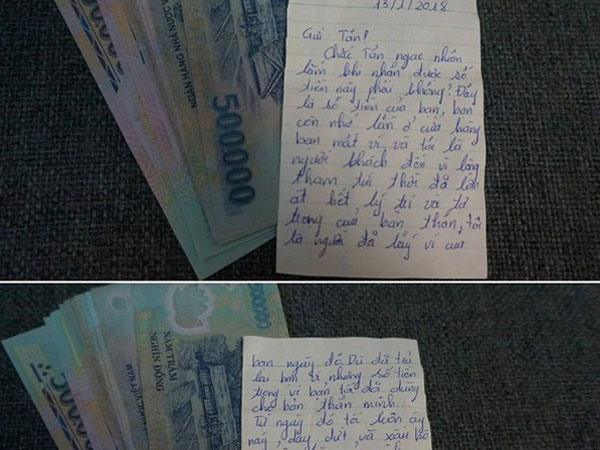 13/1/2018
Gửi Tấn!
Chắc Tấn ngạc nhiên
lắm khi nhận được số
tiền này phải không? Đây
là số tiền của bạn, bạn
còn nhớ lần ở cửa hàng
bạn mất ví và tôi là
người khách đến vì lòng
tham tức thời đã lấn
át hết lý trí và tự
trọng của bản thân, tôi
là người đã lấy ví của
500000
NGÂN HÀNG NHÀ NƯỚC
bạn ngày đó. Dù đã trả
lại bạn ví nhưng số tiền
trong ví bạn tôi đã dùng
cho bản thân mình.
Từ ngày đó tôi luôn áy
náy, day dứt và xấu hổ
NĂM TRĂM
NGHÌN ĐỒNG